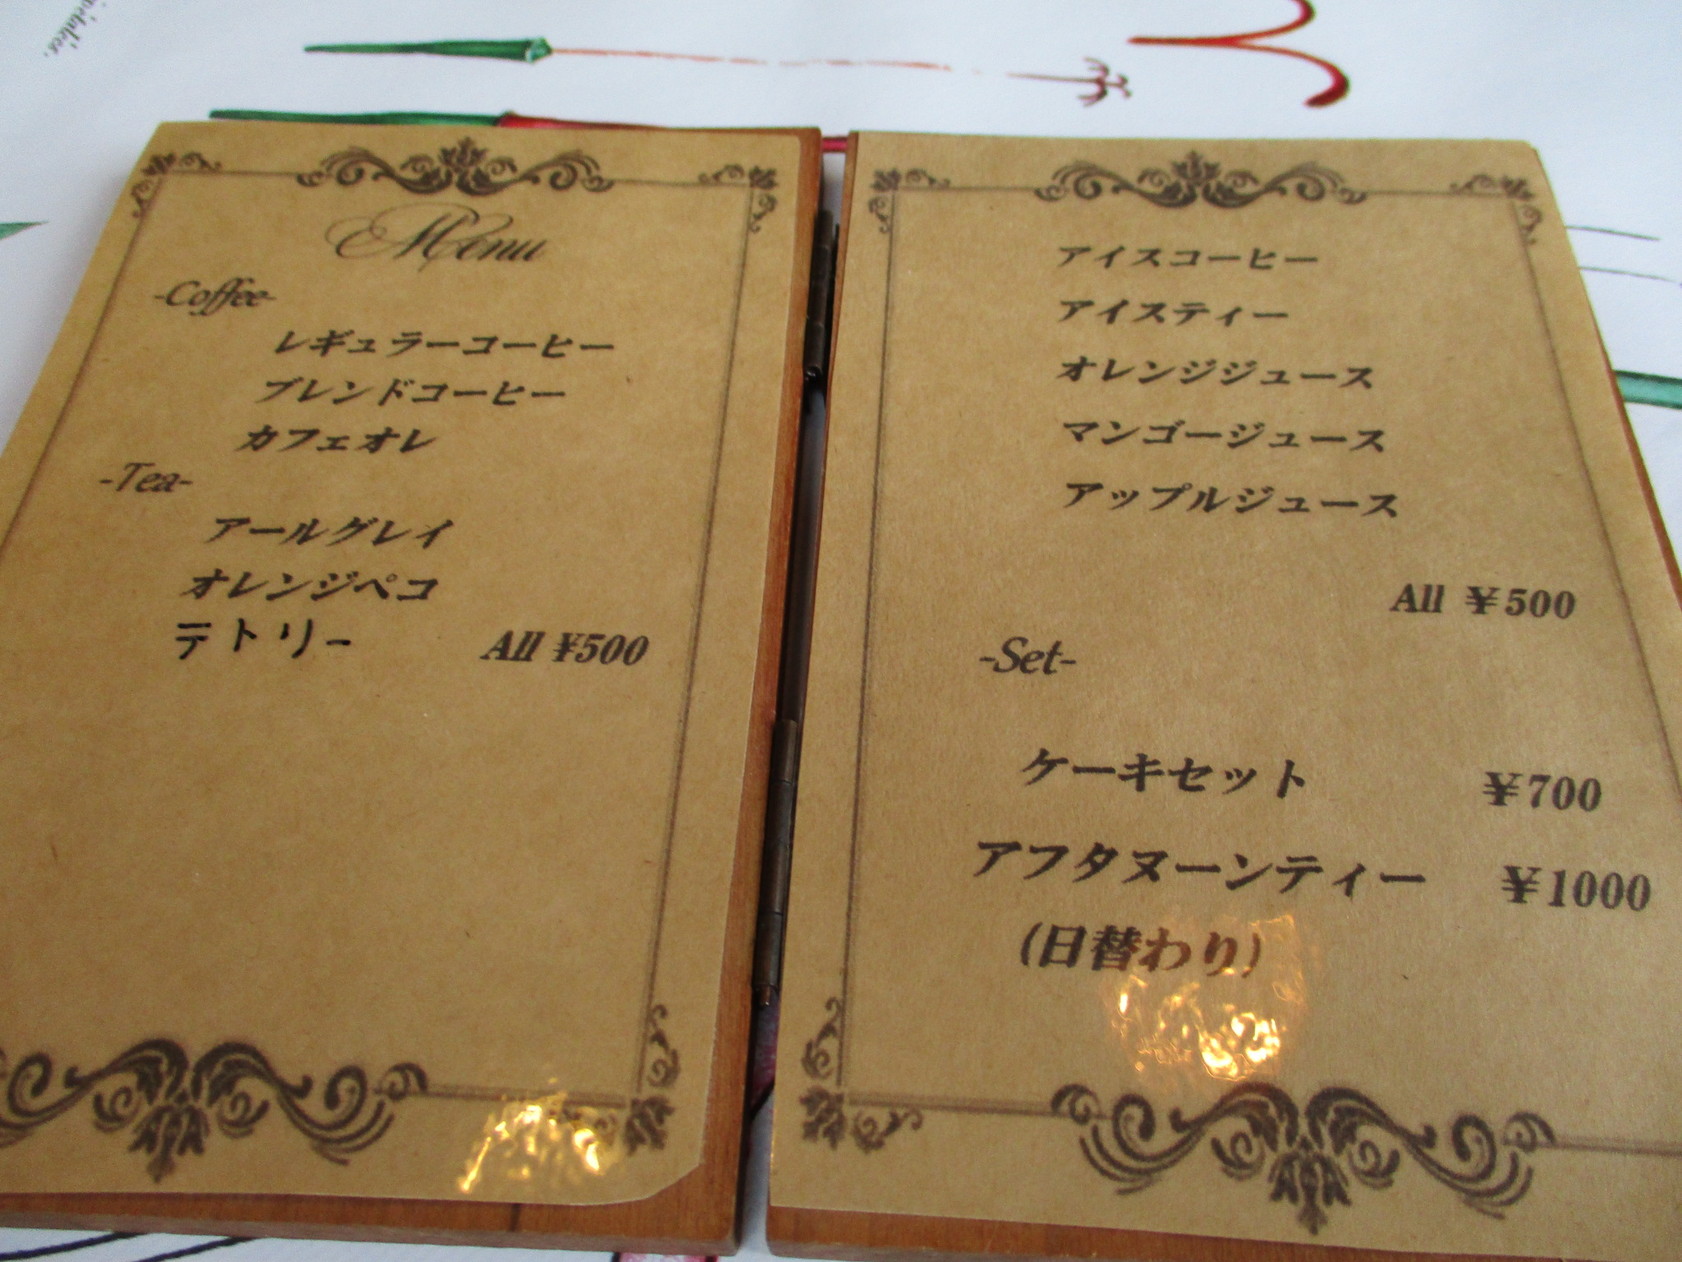 Menu
-Coffee-
レギュラーコーヒー
ブレンドコーヒー
カフェオレ
-Tea-
アールグレイ
オレンジペコ
テトリー All ¥500
アイスコーヒー
アイスティー
オレンジジュース
マンゴージュース
アップルジュース
All ¥500
-Set-
ケーキセット ¥700
アフタヌーンティー ¥1000
(日替わり)